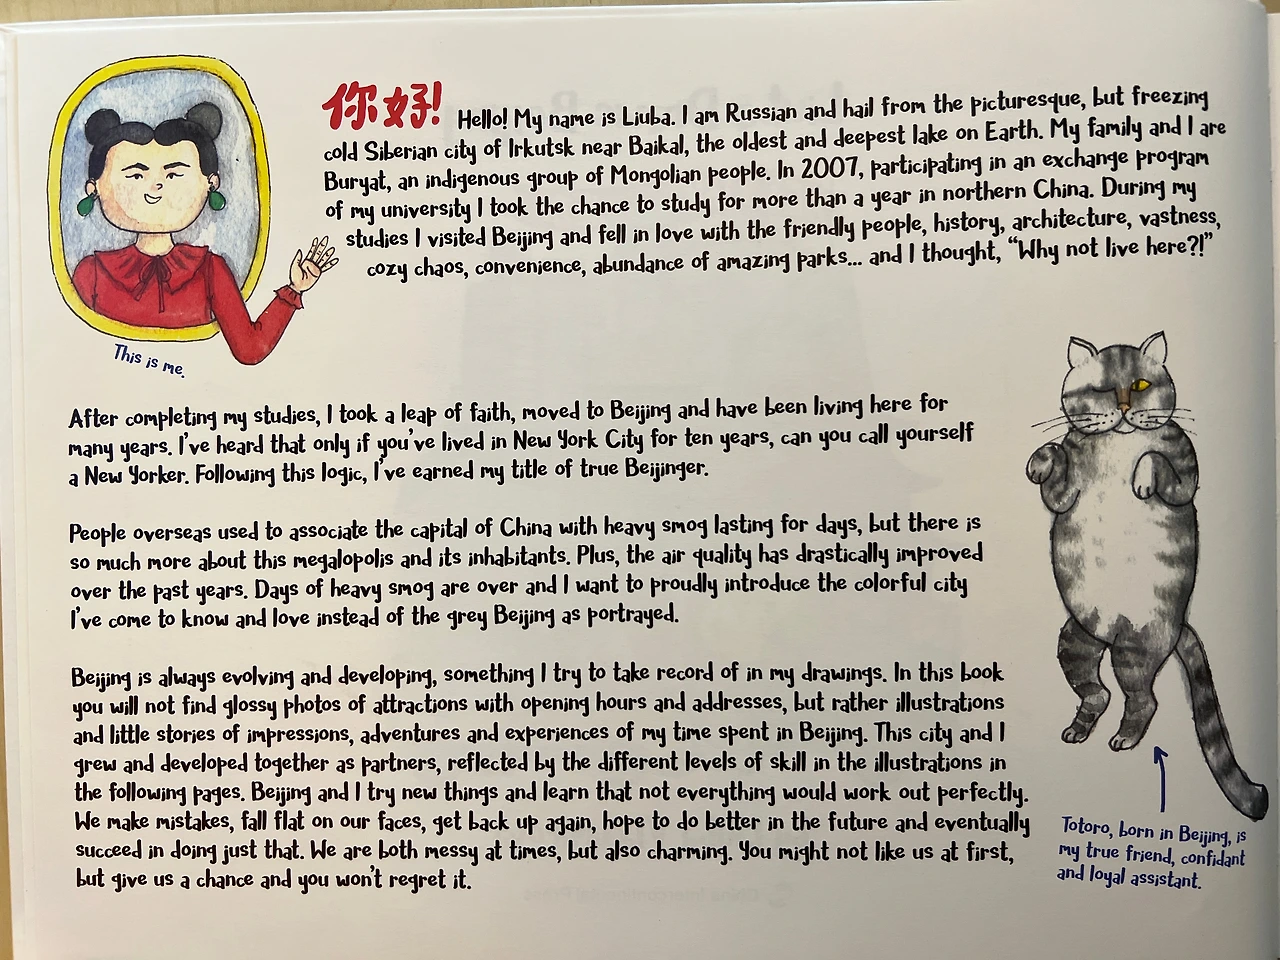 你好! Hello! My name is Liuba. I am Russian and hail from the picturesque, but freezing
cold Siberian city of Irkutsk near Baikal, the oldest and deepest lake on Earth. My family and I are
Buryat, an indigenous group of Mongolian people. In 2007, participating in an exchange program
of my university I took the chance to study for more than a year in northern China. During my
studies I visited Beijing and fell in love with the friendly people, history, architecture, vastness,
cozy chaos, convenience, abundance of amazing parks... and I thought, “Why not live here?!”
This is me.
After completing my studies, I took a leap of faith, moved to Beijing and have been living here for
many years. I've heard that only if you've lived in New York City for ten years, can you call yourself
a New Yorker. Following this logic, I've earned my title of true Beijinger.
People overseas used to associate the capital of China with heavy smog lasting for days, but there is
so much more about this megalopolis and its inhabitants. Plus, the air quality has drastically improved
over the past years. Days of heavy smog are over and I want to proudly introduce the colorful city
I've come to know and love instead of the grey Beijing as portrayed.
Beijing is always evolving and developing, something I try to take record of in my drawings. In this book
you will not find glossy photos of attractions with opening hours and addresses, but rather illustrations
and little stories of impressions, adventures and experiences of my time spent in Beijing. This city and I
grew and developed together as partners, reflected by the different levels of skill in the illustrations in
the following pages. Beijing and I try new things and learn that not everything would work out perfectly.
We make mistakes, fall flat on our faces, get back up again, hope to do better in the future and eventually
succeed in doing just that. We are both messy at times, but also charming. You might not like us at first,
but give us a chance and you won't regret it.
Totoro, born in Beijing, is
my true friend, confidant
and loyal assistant.